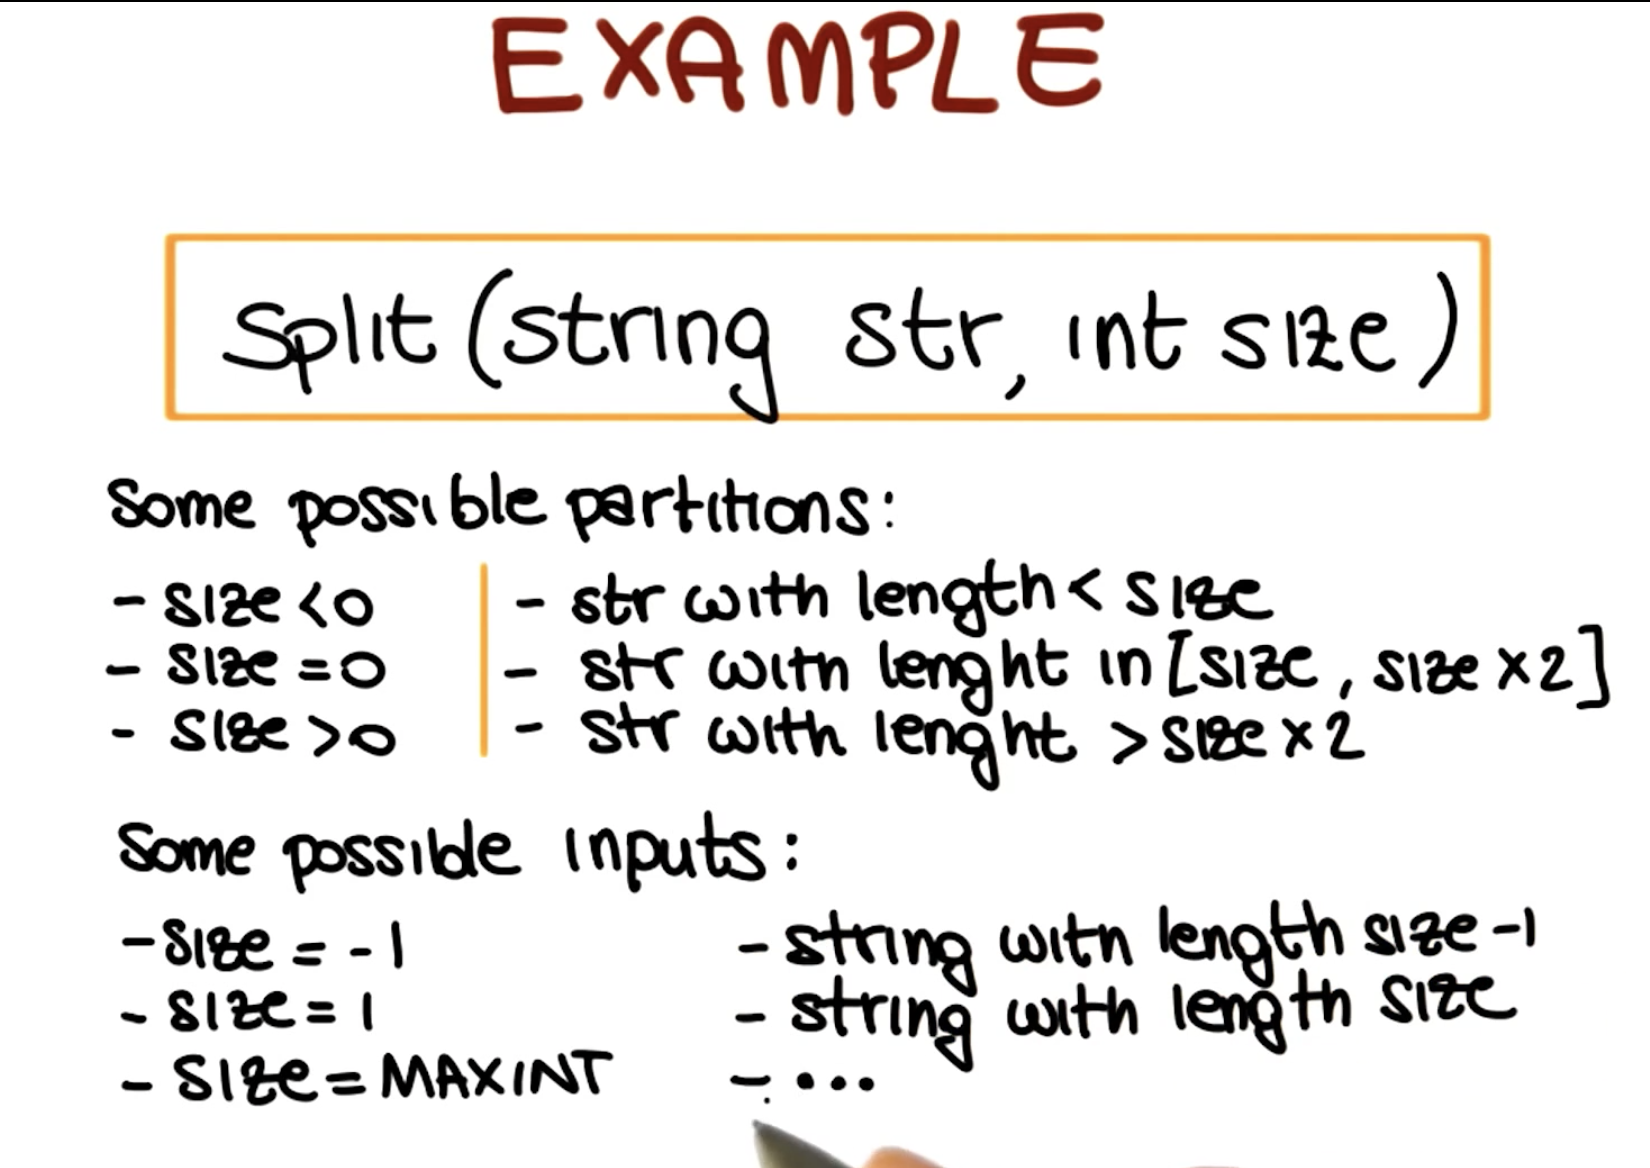 EXAMPLE
Split (string str, int size)
Some possible partitions:
- size < 0
- size = 0
- size > 0
- str with length < size
- str with lenght in [size, size x 2]
- str with lenght > size x 2
Some possible inputs:
- size = -1
- size = 1
- size = MAXINT
- string with length size -1
- string with length size
- ...